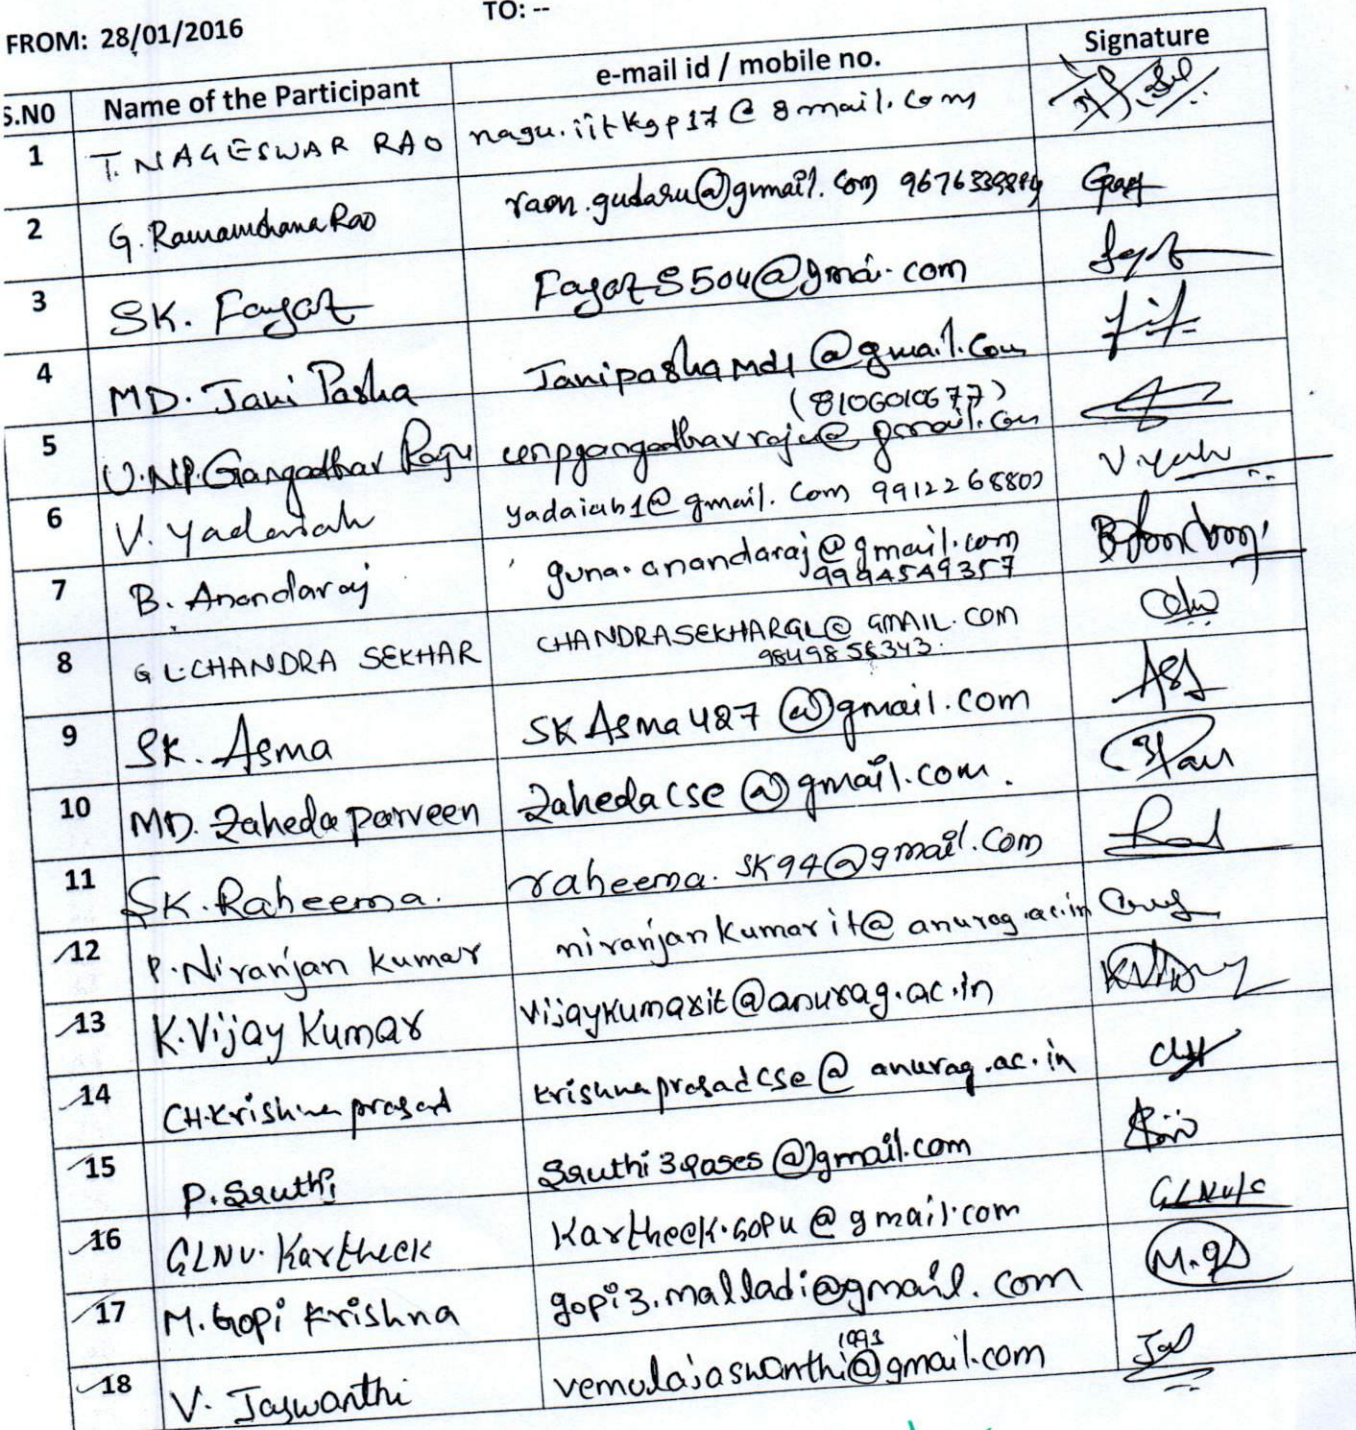 FROM: 28/01/2016 TO: --
S.NO Name of the Participant e-mail id / mobile no. Signature
1 T. NAGESWAR RAO nagu.iitkgp17@gmail.com
2 G. Ramamohana Rao @gmail.com
3 SK. Fayaz FayazS504@gmai.com
4 MD. Jani Pasha Janipashamd1@gmail.com
(8106010677)
5 U.NP.Gangadhar Raju @gmail.com
6 V. Yadaiah yadaiah1@gmail.com
V.Yada
7 B. Anandaraj guna.anandaraj@gmail.com
9994549357
8 G L CHANDRA SEKHAR CHANDRASEKHARGL@GMAIL.COM
9849856343.
9 SK. Asma SKAsma487@gmail.com
10 MD. Zaheda parveen Zahedacse@gmail.com.
11 SK. Raheema. raheema.SK94@gmail.com
12 P. Niranjan kumar niranjankumarit@anurag.ac.in
13 K. Vijay Kumar vijaykumarit@anurag.ac.in
14 CH.Krishna prasad krishnaprasadcse@anurag.ac.in
15 P. Sruthi Sruthi3roses@gmail.com
16 GLNV. Kartheek Kartheek.gopu@gmail.com
17 M. Gopi Krishna gopi3.malladi@gmail.com M.G
18 V. Jaswanthi vemulajaswanthi@gmail.com
1993